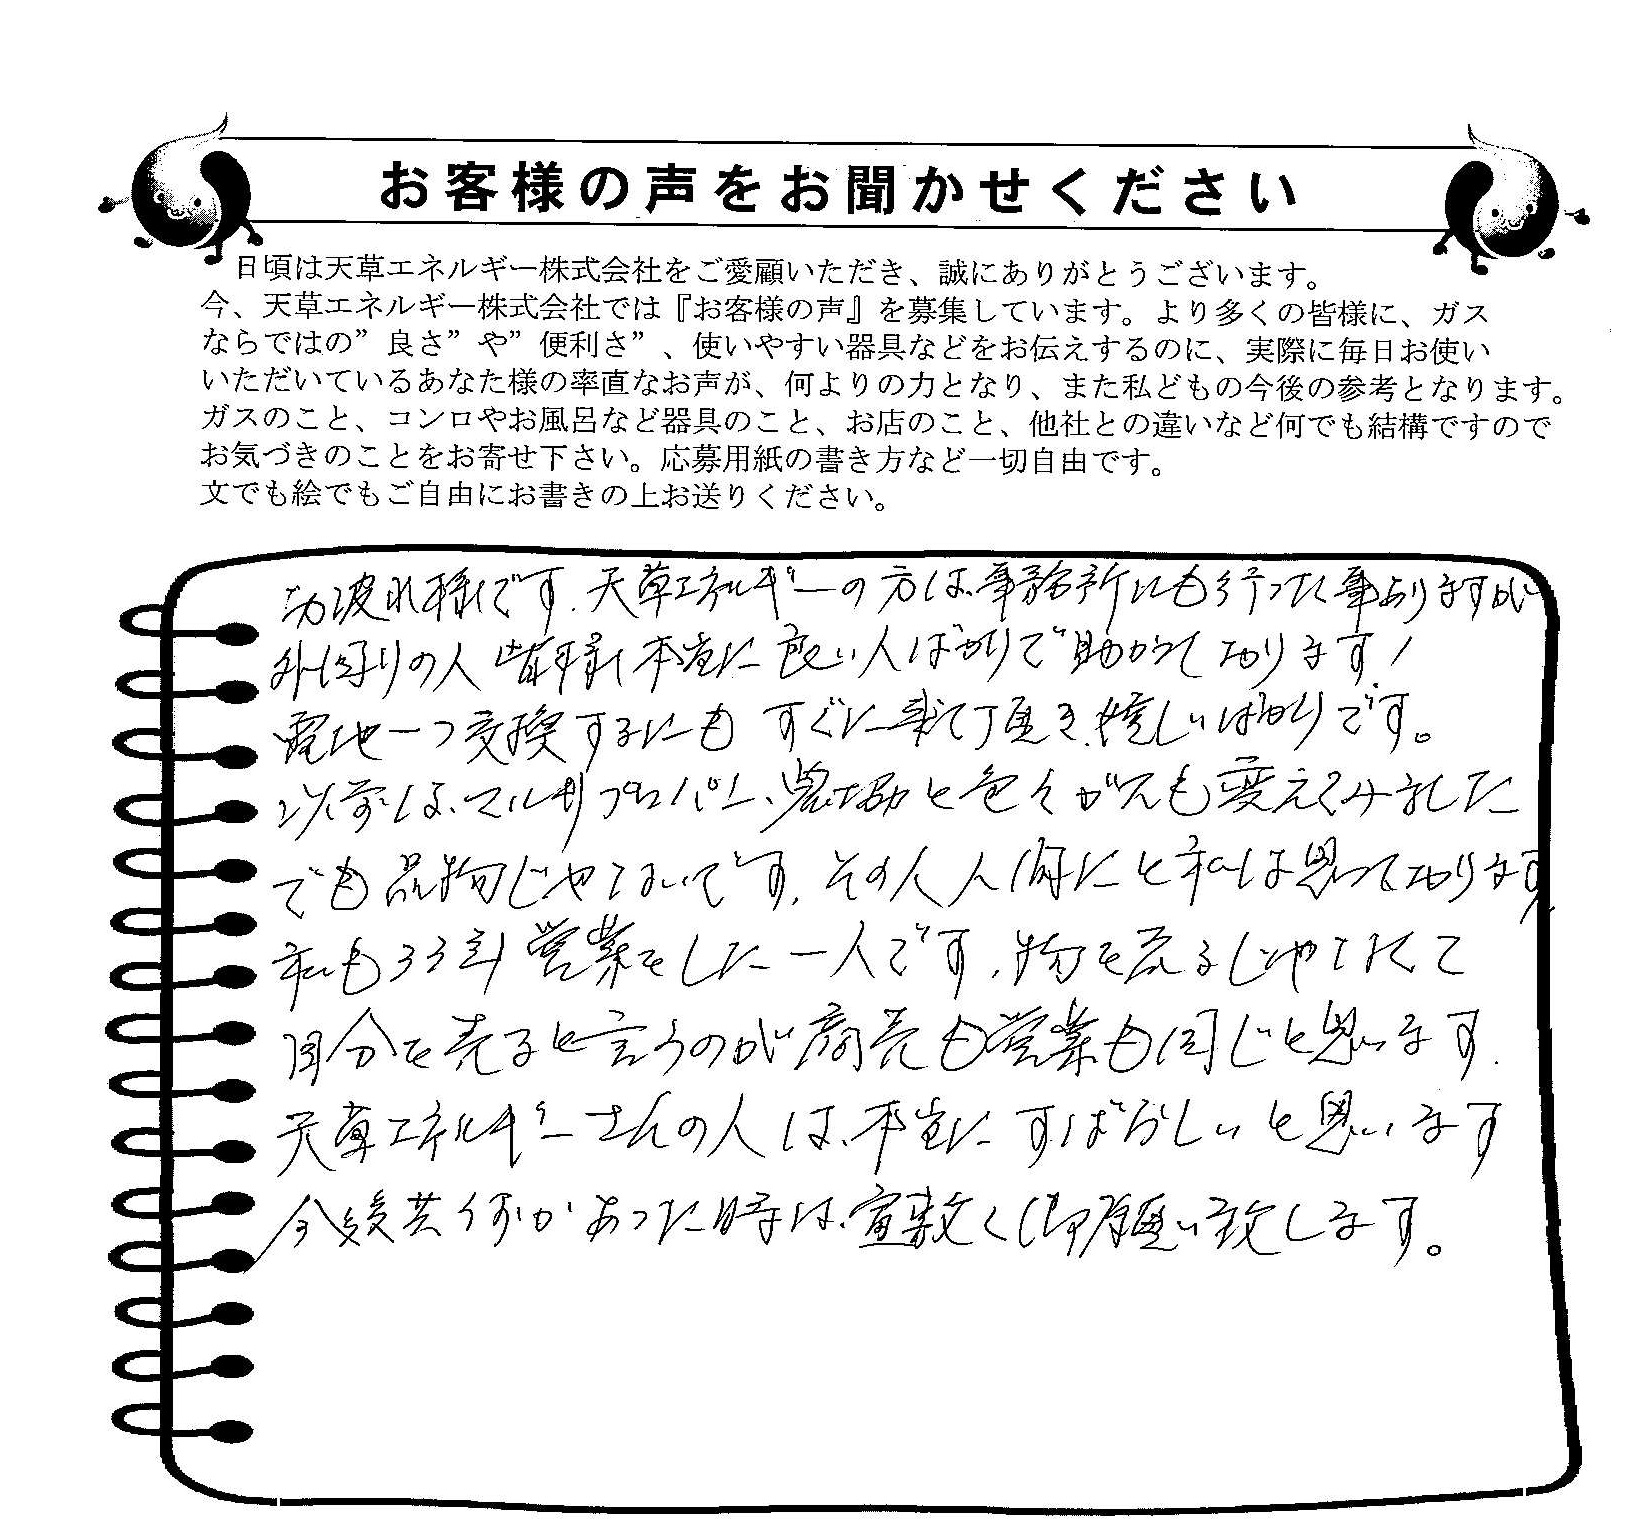 お客様の声をお聞かせください
日頃は天草エネルギー株式会社をご愛顧いただき、誠にありがとうございます。
今、天草エネルギー株式会社では『お客様の声』を募集しています。より多くの皆様に、ガス
ならではの”良さ”や”便利さ”、使いやすい器具などをお伝えするのに、実際に毎日お使い
いただいているあなた様の率直なお声が、何よりの力となり、また私どもの今後の参考となります。
ガスのこと、コンロやお風呂など器具のこと、お店のこと、他社との違いなど何でも結構ですので
お気づきのことをお寄せ下さい。応募用紙の書き方など一切自由です。
文でも絵でもご自由にお書きの上お送りください。
お疲れ様です、天草エネルギーの方は、事務所にも行った事ありますが
外回りの人皆様本当に良い人ばかりで助かっております！
電池一つ交換するにもすぐに来て頂き、嬉しいばかりです。
以前は、マルキプロパン、農協と色々ガスも変えてみました
でも品物じゃないです、その人人間にと私は思っております
私も33年営業をした一人です、物を売るじゃなくて
自分を売ると言うのが商売も営業も同じと思います、
天草エネルギーさんの人は、本当にすばらしいと思います
今後共何かあった時は、宜敷く御願い致します。